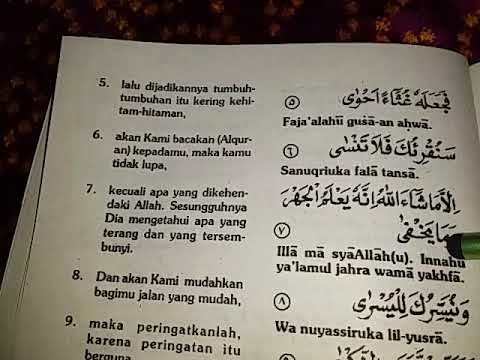 5. lalu dijadikannya tumbuh-
tumbuhan itu kering kehi-
tam-hitaman,
فَجَعَلَهٗ غُثَاۤءً اَحْوٰى ٥
Faja'alahū gusā-an aḥwā.
6. akan Kami bacakan (Alqur-
an) kepadamu, maka kamu
tidak lupa,
سَنُقْرِئُكَ فَلَا تَنْسٰٓى ٦
Sanuqriuka falā tansā.
7. kecuali apa yang dikehen-
daki Allah. Sesungguhnya
Dia mengetahui apa yang
terang dan yang tersem-
bunyi.
اِلَّا مَا شَاۤءَ اللّٰهُ اِنَّهٗ يَعْلَمُ الْجَهْرَ
وَمَا يَخْفٰى ٧
Illā mā syāAllāh(u). Innahū
ya'lamul jahra wamā yakhfā.
8. Dan akan Kami mudahkan
bagimu jalan yang mudah,
وَنُيَسِّرُكَ لِلْيُسْرٰى ٨
Wa nuyassiruka lil-yusrā.
9. maka peringatkanlah,
karena peringatan itu
berguna